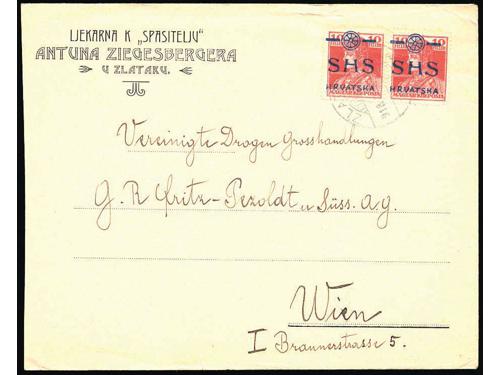 LJEKARNA K „SPASITELJU“
ANTUNA ZIEGESBERGERA
U ZLATARU.
10 10
SHS
HRVATSKA
MAGYAR KIR. POSTA
10 10
SHS
HRVATSKA
MAGYAR KIR. POSTA
ZLA
918
Vereinigte Drogen Grosshandlungen
G. R. Fritz-Pezoldt u. Süss. A.G.
Wien
I Braunerstrasse 5.